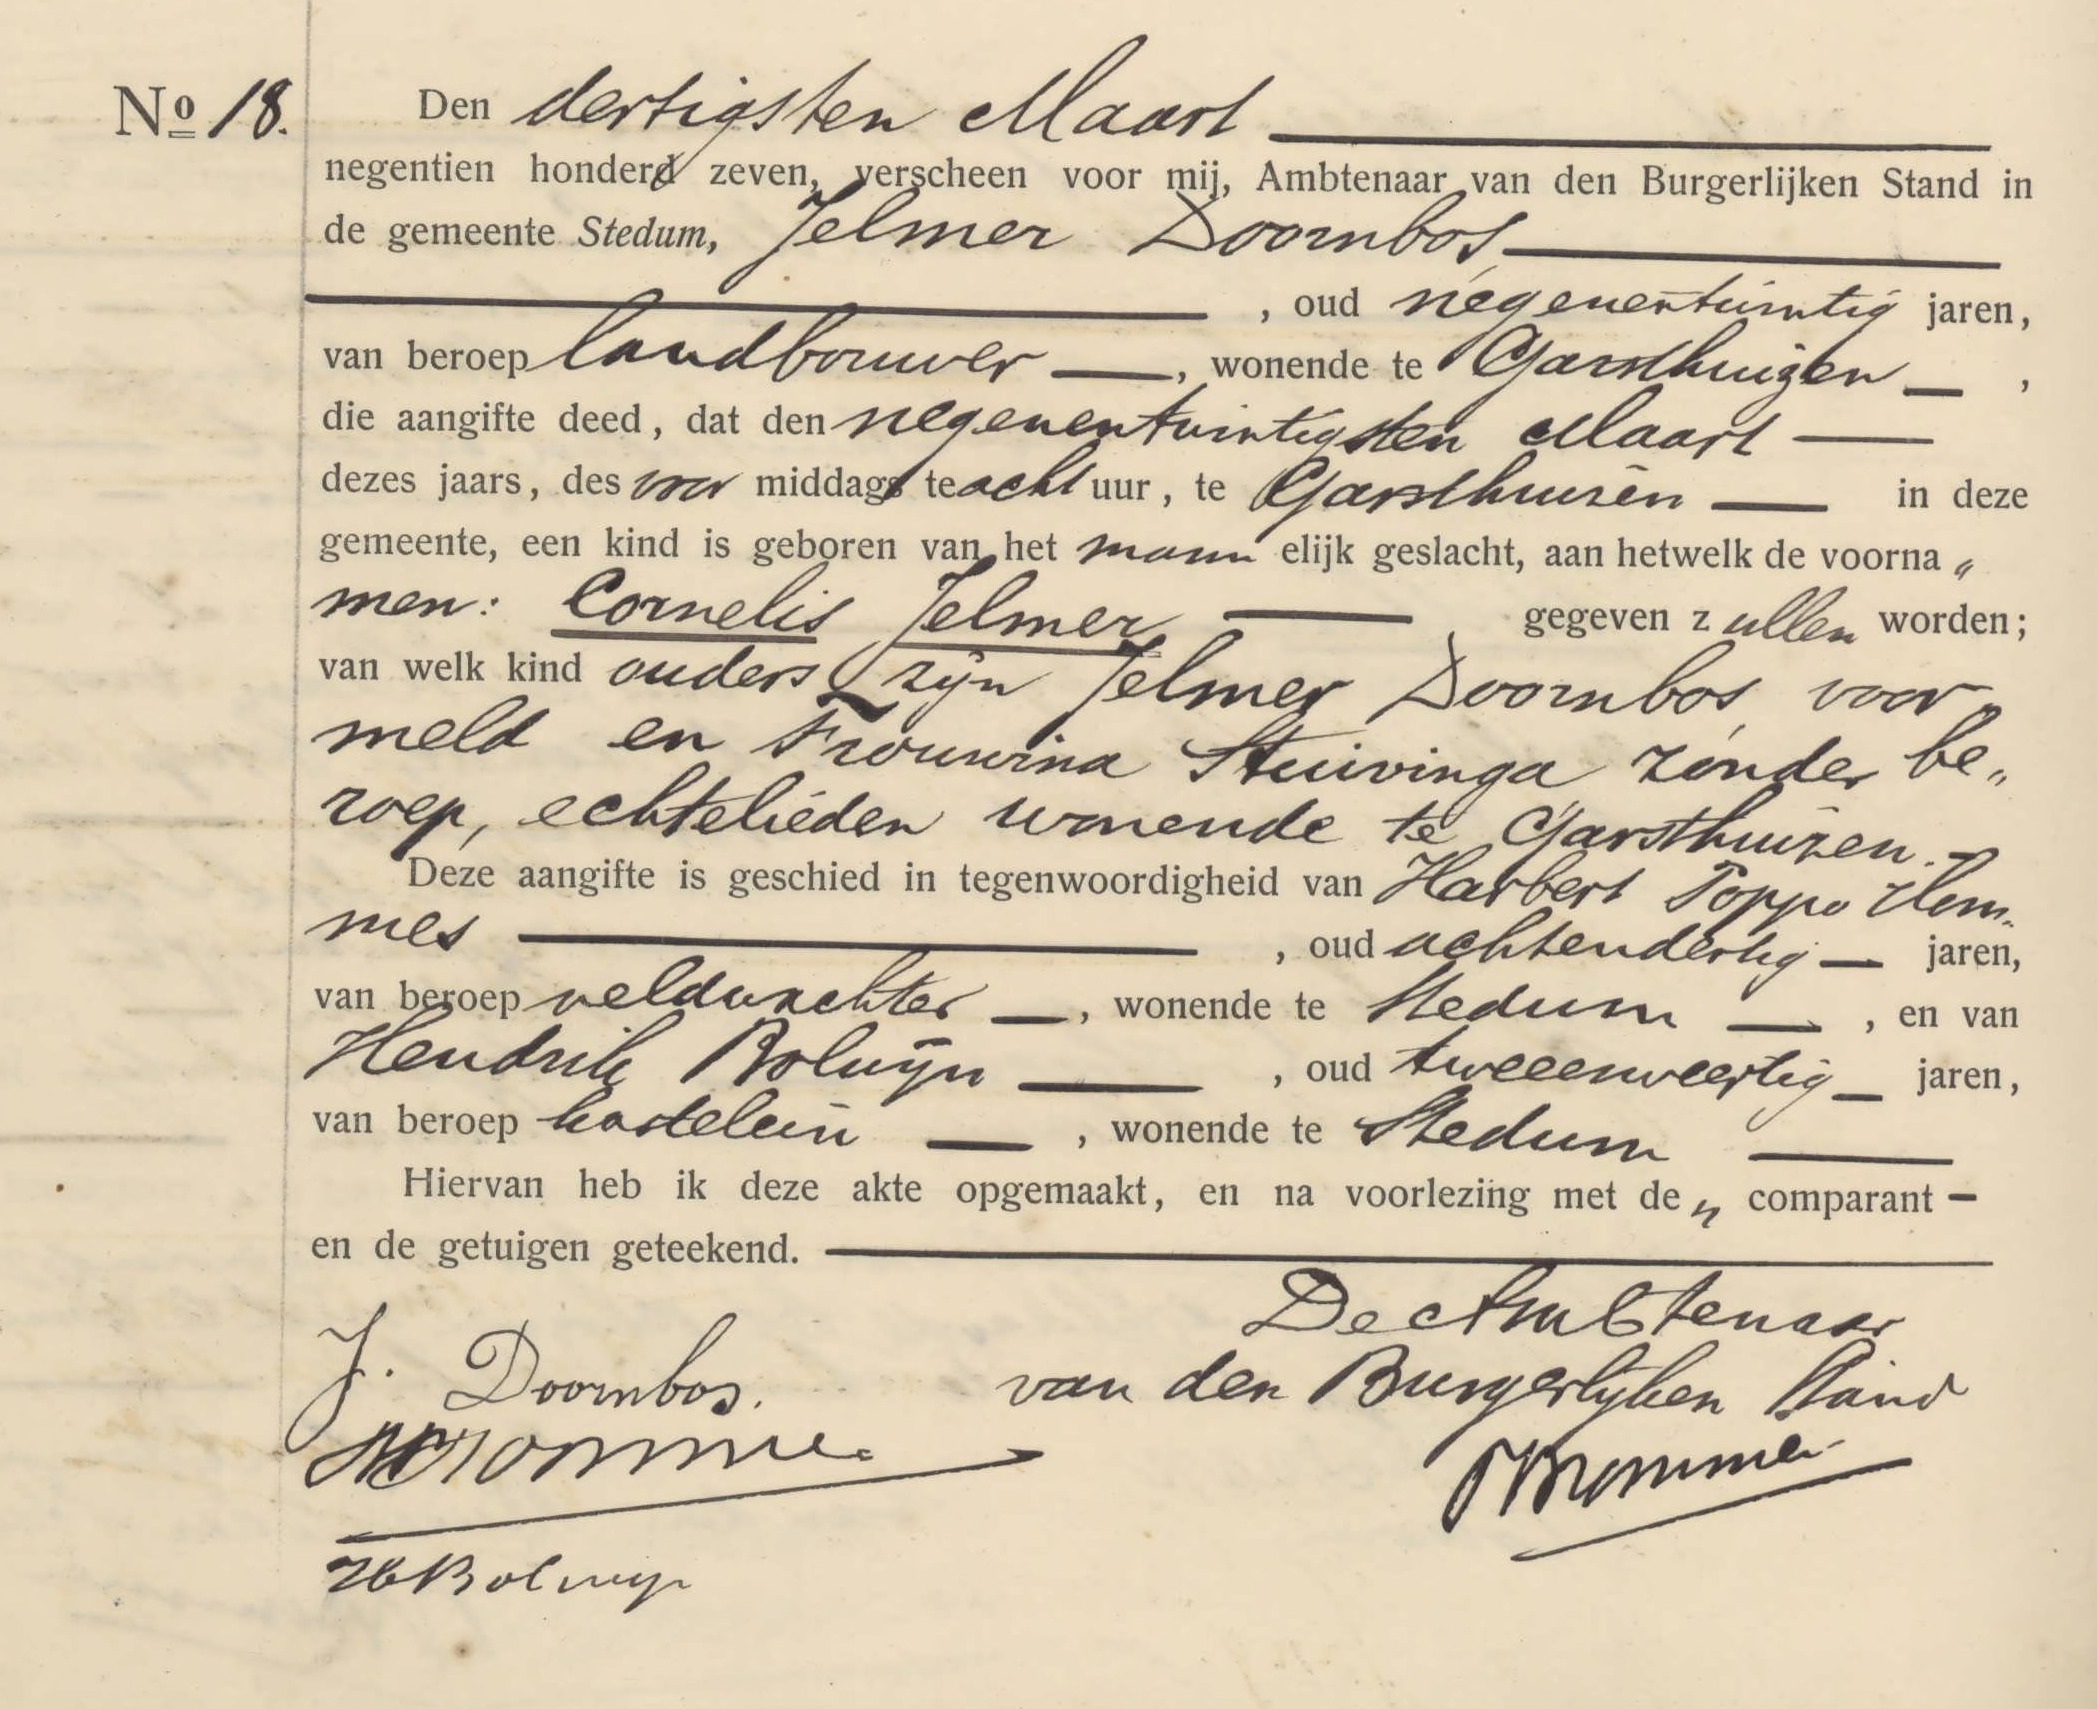 No 18. Den dertigsten Maart
negentien honderd zeven, verscheen voor mij, Ambtenaar van den Burgerlijken Stand in
de gemeente Stedum, Jelmer Doornbos
, oud negenentwintig jaren,
van beroep landbouwer, wonende te Garsthuizen,
die aangifte deed, dat den negenentwintigsten Maart
dezes jaars, des voor middags te acht uur, te Garsthuizen in deze
gemeente, een kind is geboren van het mann elijk geslacht, aan hetwelk de voorna„
men: Cornelis Jelmer gegeven z ullen worden;
van welk kind ouders zijn Jelmer Doornbos, voor„
meld en Frouwina Stuivinga zonder be„
roep, echtelieden wonende te Garsthuizen.
Deze aangifte is geschied in tegenwoordigheid van Harbert Poppo Hem„
mes, oud achtendertig jaren,
van beroep veldwachter, wonende te Stedum, en van
Hendrik Bolwijn, oud tweeenveertig jaren,
van beroep kastelein, wonende te Stedum
Hiervan heb ik deze akte opgemaakt, en na voorlezing met de n comparant
en de getuigen geteekend.
De Ambtenaar
J. Doornbos. van den Burgerlijken Stand
HBolwijn